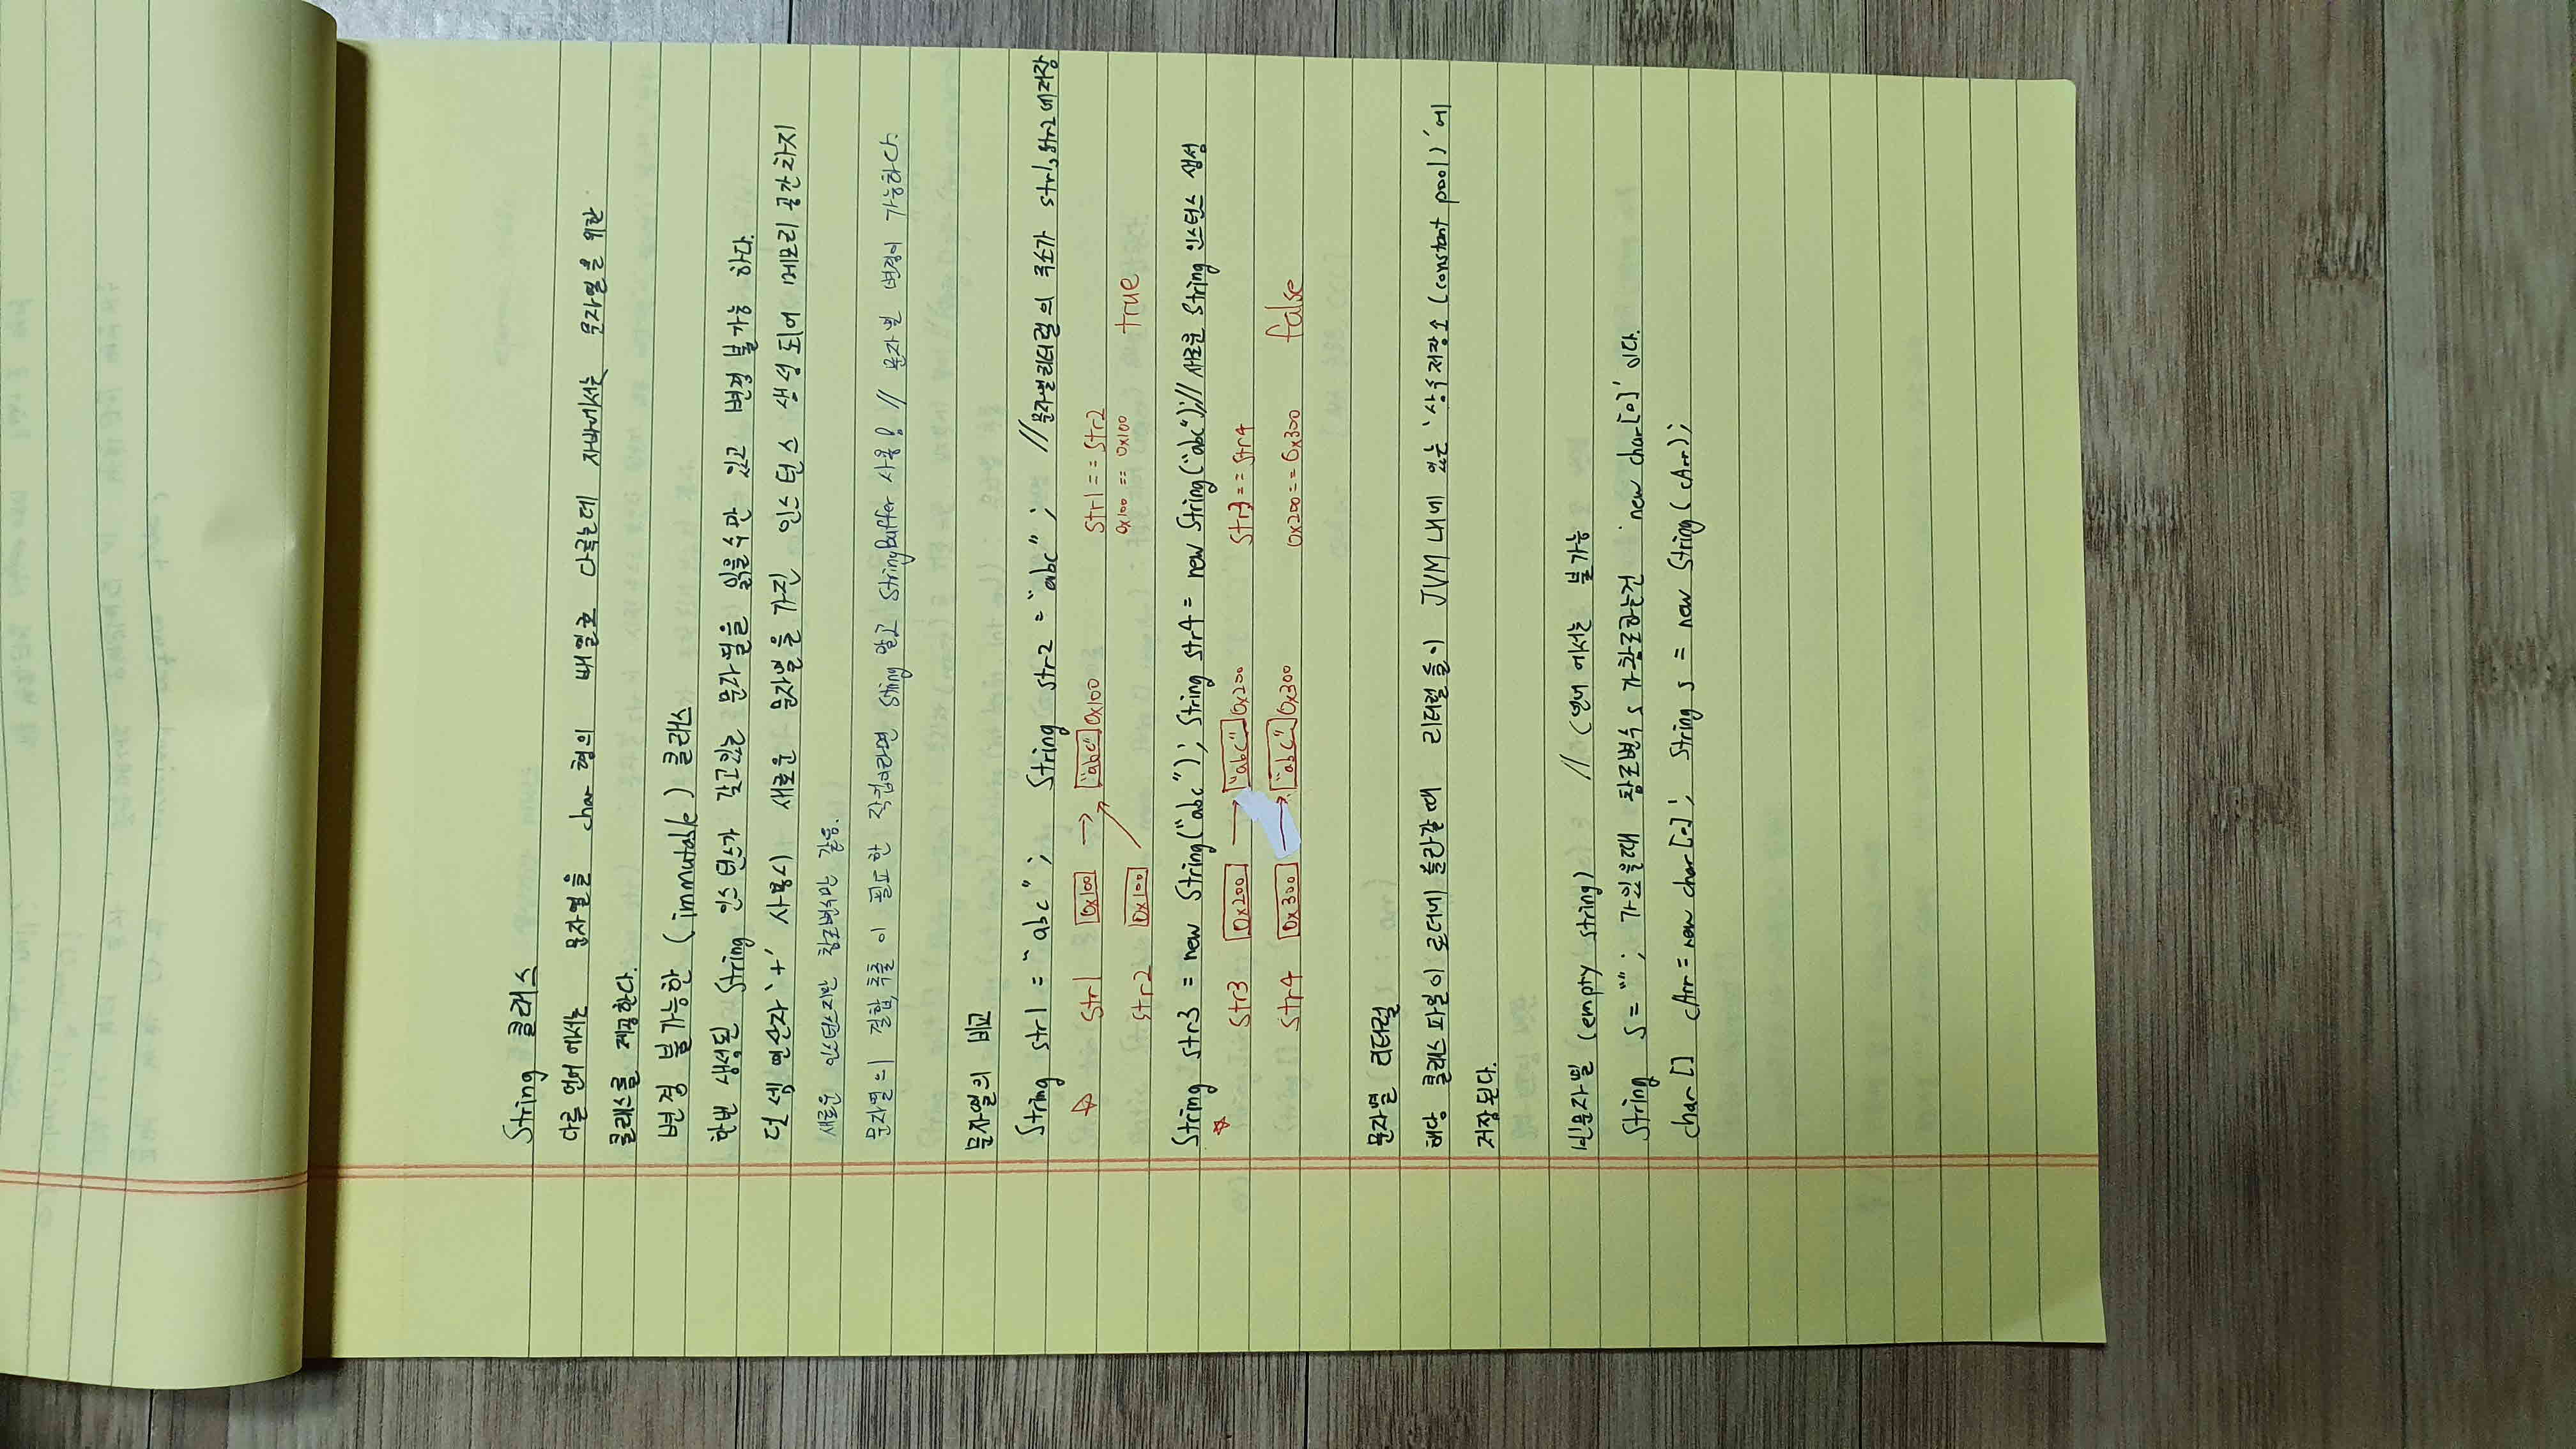 String 클래스
다른 언어에서는 문자열을 char 형의 배열로 다루는데 자바에서는 문자열을 위한
클래스를 제공한다.
변경 불가능한 (immutable) 클래스
한번 생성된 String 인스턴스가 갖고있는 문자열을 읽을수만 있고 변경 불가능 하다.
덧셈 연산자 '+' 사용시 새로운 문자열을 가진 인스턴스 생성되어 메모리 공간차지
새로운 인스턴스지만 참조변수만 같음.
문자열의 결합, 추출이 필요한 작업이라면 String 말고 StringBuffer 사용! // 문자열 변경이 가능하다.
문자열의 비교
String str1 = "abc"; String str2 = "abc"; //문자열리터럴의 주소가 str1, str2에저장
☆ str1 0x100 → "abc" 0x100 str1 == str2
str2 0x100 0x100 == 0x100 true
String str3 = new String("abc"); String str4 = new String("abc");// 새로운 String 인스턴스 생성
☆ str3 0x200 → "abc" 0x200 str3 == str4
str4 0x300 → "abc" 0x300 0x200 == 0x300 false
문자열 리터럴
해당 클래스 파일이 로더에 올라갈때 리터럴들이 JVM 내에 있는 '상수저장소 (constant pool)'에
저장된다.
빈문자열 (empty string) // C언어에서는 불가능
String s = ""; 가있을때 참조변수 s 가참조하는건 'new char[0]' 이다.
char [] cArr = new char[0]; String s = new String( cArr);